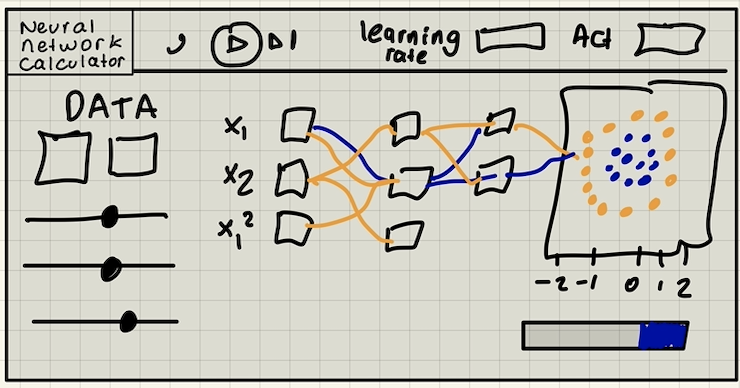 Neural
network
Calculator
learning
rate
Act
DATA
x₁
x₂
x₁²
-2 -1 0 1 2